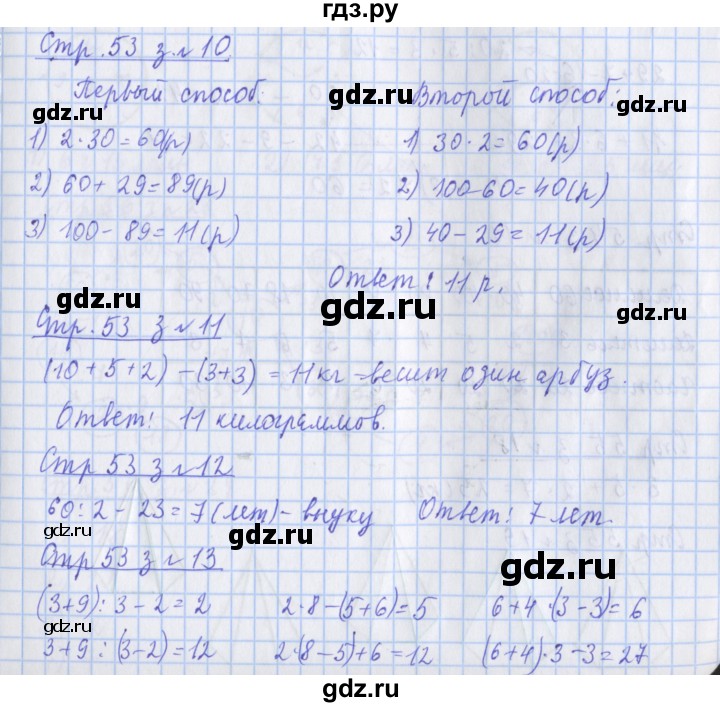 гдз.ру
Стр. 53 з. № 10
Первый способ:
1) 2·30=60(р)
2) 60+29=89(р)
3) 100-89=11(р)
Второй способ:
1) 30·2=60(р)
2) 100-60=40(р)
3) 40-29=11(р)
Ответ: 11 р.
Стр. 53 з № 11
(10+5+2)-(3+3)=11кг=весит один арбуз.
Ответ: 11 килограммов.
Стр 53 з № 12
60:2-23=7(лет)-внуку
Ответ: 7 лет.
Стр 53 з № 13
(3+9):3-2=2 2·8-(5+6)=5 6+4·(3-3)=6
3+9:(3-2)=12 2·(8-5)+6=12 (6+4)·3-3=27
gdz.ru
gdz.ru
gdz.ru
gdz.ru
gdz.ru
gdz.ru
gdz.ru
gdz.ru
gdz.ru
gdz.ru
gdz.ru
gdz.ru